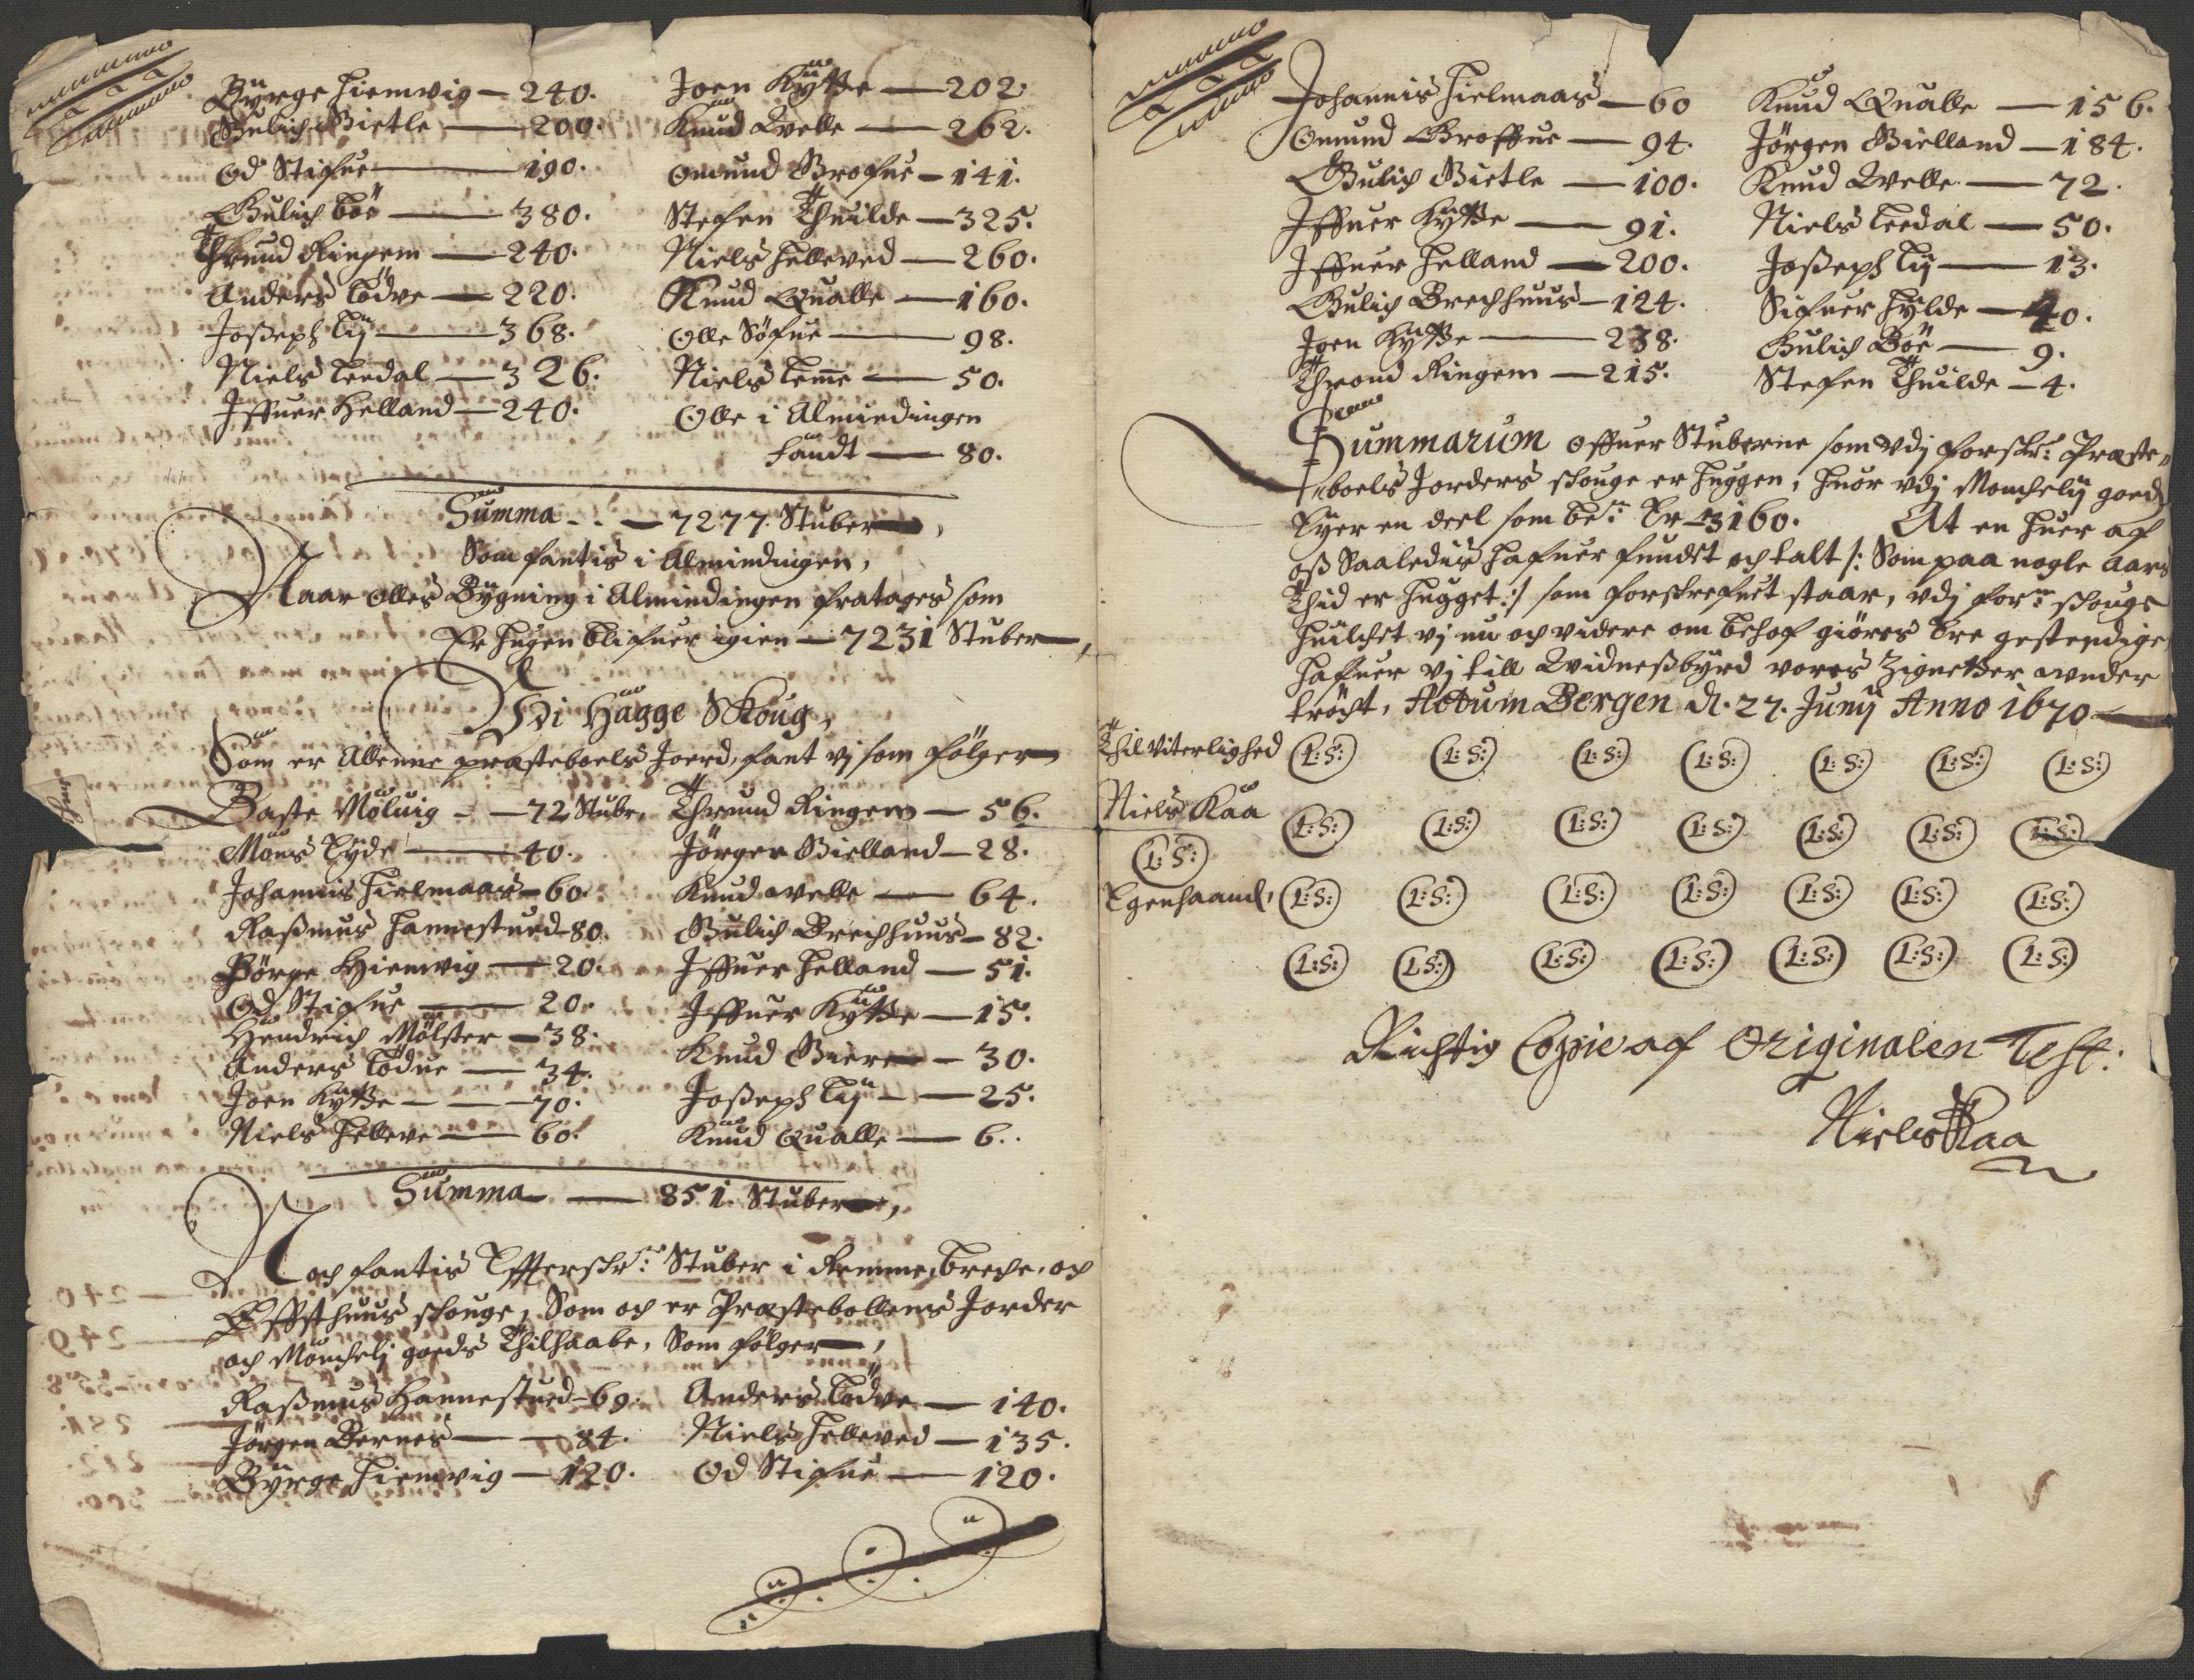 Bürge Hiemvig — 240.
Gulich Gietle — 200.
Od Stifne — 190.
Gulich Böe — 380.
Thrund Ringem — 240.
Anders Lödve — 220.
Joseph Lij — 368.
Niels Leedal — 326.
Iffuer Helland — 240.
Joen Kytte — 202.
Knud Qvelle — 262.
Omund Grofue — 141.
Stefen Thuilde — 325.
Niels Helleved — 260.
Knud Qualle — 160.
Olle Söfne — 98.
Niels Lemme — 50.
Olle i Almindingen
fandt — 80.
Summa - - — 7277. Stuber,
Som fantis i Almindingen,
Naar Olles Bygning i Almindingen fratages som
Er hugen blifuer igien — 7231 Stuber,
Vdi Hagge Skoug,
Som er Allenne præsteboels Joerd, fant vj som fölger
Baste Möluig - — 72 Stube,
Mons Tyde — 40.
Johannis Hielmaas — 60.
Rasmus Hannestued — 80.
Börge Hiemvig — 20.
Od Stifne — 20.
Hendrich Mölster — 38.
Anders Lödue — 34.
Joen Kytte — 70.
Niels Helleve — 60.
Thrund Ringem — 56.
Jörgen Gielland — 28.
Knud Qvelle — 64.
Gulich Brechhuus — 82.
Iffuer Helland — 51.
Iffuer Kytte — 15.
Knud Giere — 30.
Joseph Lij — 25.
Knud Qualle — 6.
Summa — 851. Stuber,
Noch fantis Effterschr: Stuber i Remme, breche, och
Effsthuus skouge, Som och er Præstebollens Jorder
och Monchelj goeds Thilhaabe, Som fölger,
Rasmus Hannestued — 69.
Jörgen Bernes — 84.
Bürge Hiemvig — 120.
Anders Lödve — 140.
Niels Helleved — 135.
Od Stifne — 120.
Johannis Hielmaas — 60
Omund Groffue — 94.
Gulich Gietle — 100.
Iffuer Kytte — 91.
Iffuer Helland — 200.
Gulich Brechhuus — 124.
Joen Kytte — 238.
Thrond Ringem — 215.
Knud Qualle — 156.
Jörgen Gielland — 184.
Knud Qvelle — 72.
Niels Leedal — 50.
Joseph Lij — 13.
Sifuer Hylde — 40.
Gulich Böe — 9.
Stefen Thuilde — 4.
Summarum offuer Stuberne som vdj forschr: Præste-
boels Jorders skouge er huggen, huor vdj Monchelij goeds
Eyer en deel som be:te Er — 3160. At en huer af
oss Saaledis hafuer fundet och talt /: Som paa nogle Aars
Thid er hugget :/ som forskrefuet staar, vdj for:ne skouge
huilchet vj nu och videre om behof giöres ere gestendige
hafuer vj till Vidnessbyrd vores Zignetter vnder
tröcht, Actum Bergen d. 27. Junij Anno 1670 —
Thil viterlighed
Niels Kaa
(L: S:)
Egenhaand,
(L: S:) (L: S:) (L: S:) (L: S:) (L: S:) (L: S:) (L: S:)
(L: S:) (L: S:) (L: S:) (L: S:) (L: S:) (L: S:) (L: S:)
(L: S:) (L: S:) (L: S:) (L: S:) (L: S:) (L: S:) (L: S:)
(L: S:) (L: S:) (L: S:) (L: S:) (L: S:) (L: S:) (L: S:)
Richtig Copie af Originalen Test:
Niels Kaa